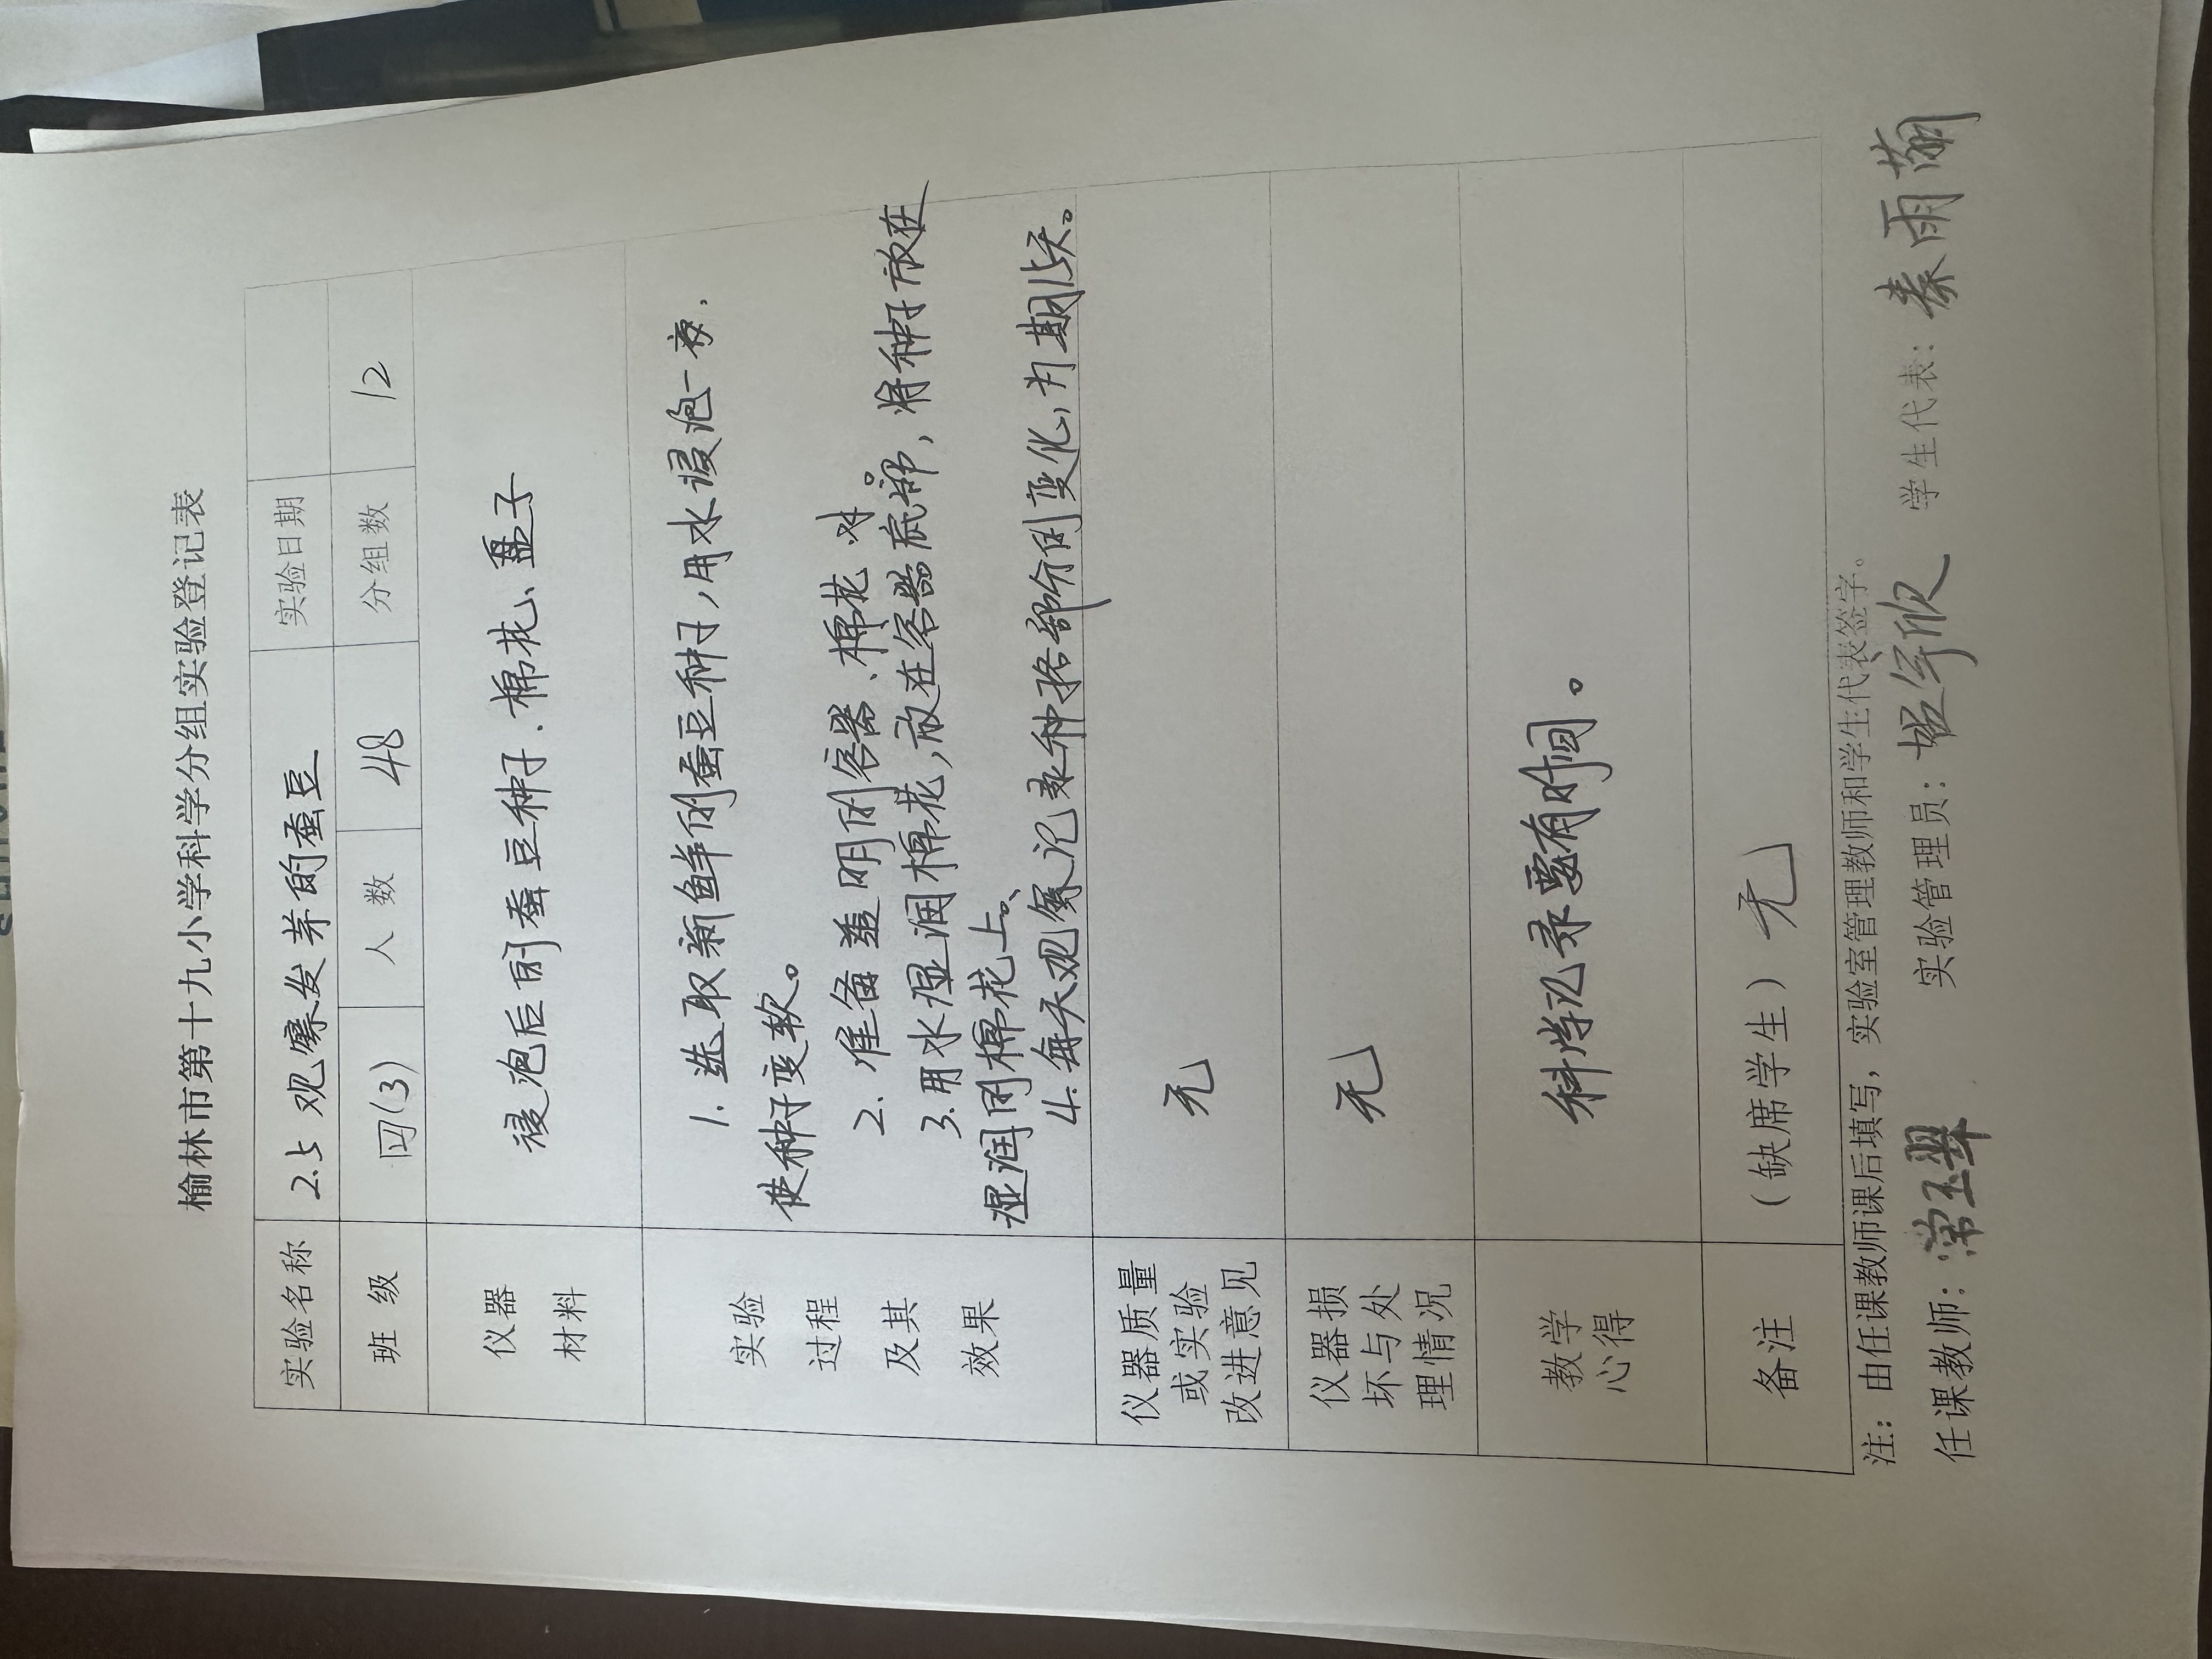 榆林市第十九小学科学分组实验登记表
实验名称 2.5 观察发芽的蚕豆 实验日期
班 级 四(3) 人 数 48 分组数 12
仪器
材料
浸泡后的蚕豆种子、棉花、盘子
实验
过程
及其
效果
1. 选取新鲜的蚕豆种子,用水浸泡一夜,
使种子变软。
2. 准备透明的容器、棉花、水。
3. 用水湿润棉花,放在容器底部,将种子放在
湿润的棉花上。
4. 每天观察记录种子各部分的变化,为期15天。
仪器质量
或实验
改进意见
无
仪器损
坏与处
理情况
无
教学
心得
科学记录要有时间。
备注
(缺席学生) 无
注:由任课教师课后填写,实验室管理教师和学生代表签字。
任课教师: 实验管理员: 学生代表:秦雨萌